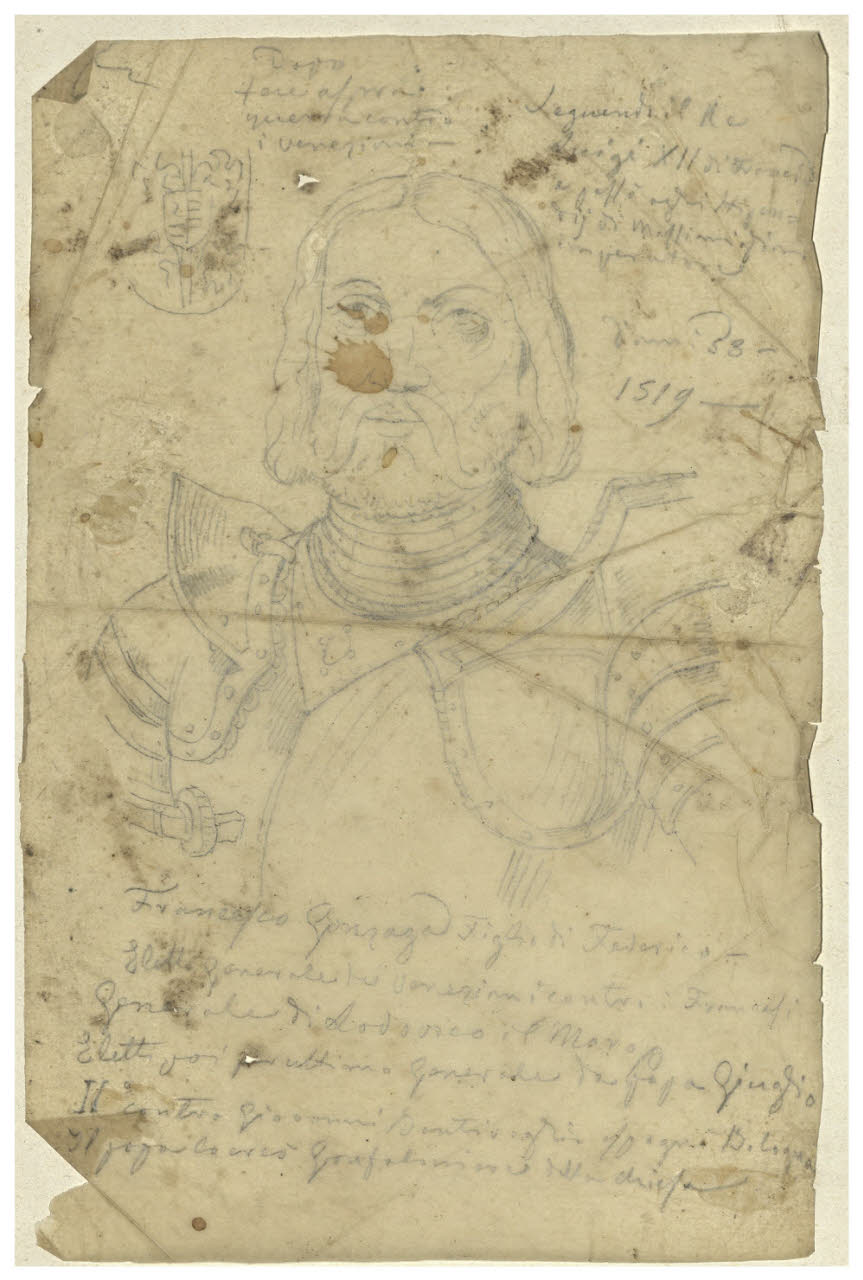 Dopo
fece aspra
guerra contro
i veneziani —
seguendo il Re
Luigi XII di Francia
e passò agli stipen=
dij di Massimigliano
imperatore
Anni 38 —
1519 —
Francesco Gonzaga Figlio di Federico —
Eletto Generale da veneziani contro i Francesi
Generale di Lodovico il Moro
Eletto poi per ultimo Generale da papa Giuglio
II contro Giovanni Bentivoglio Bologna
Il papa lo creò Gonfaloniere della chiesa